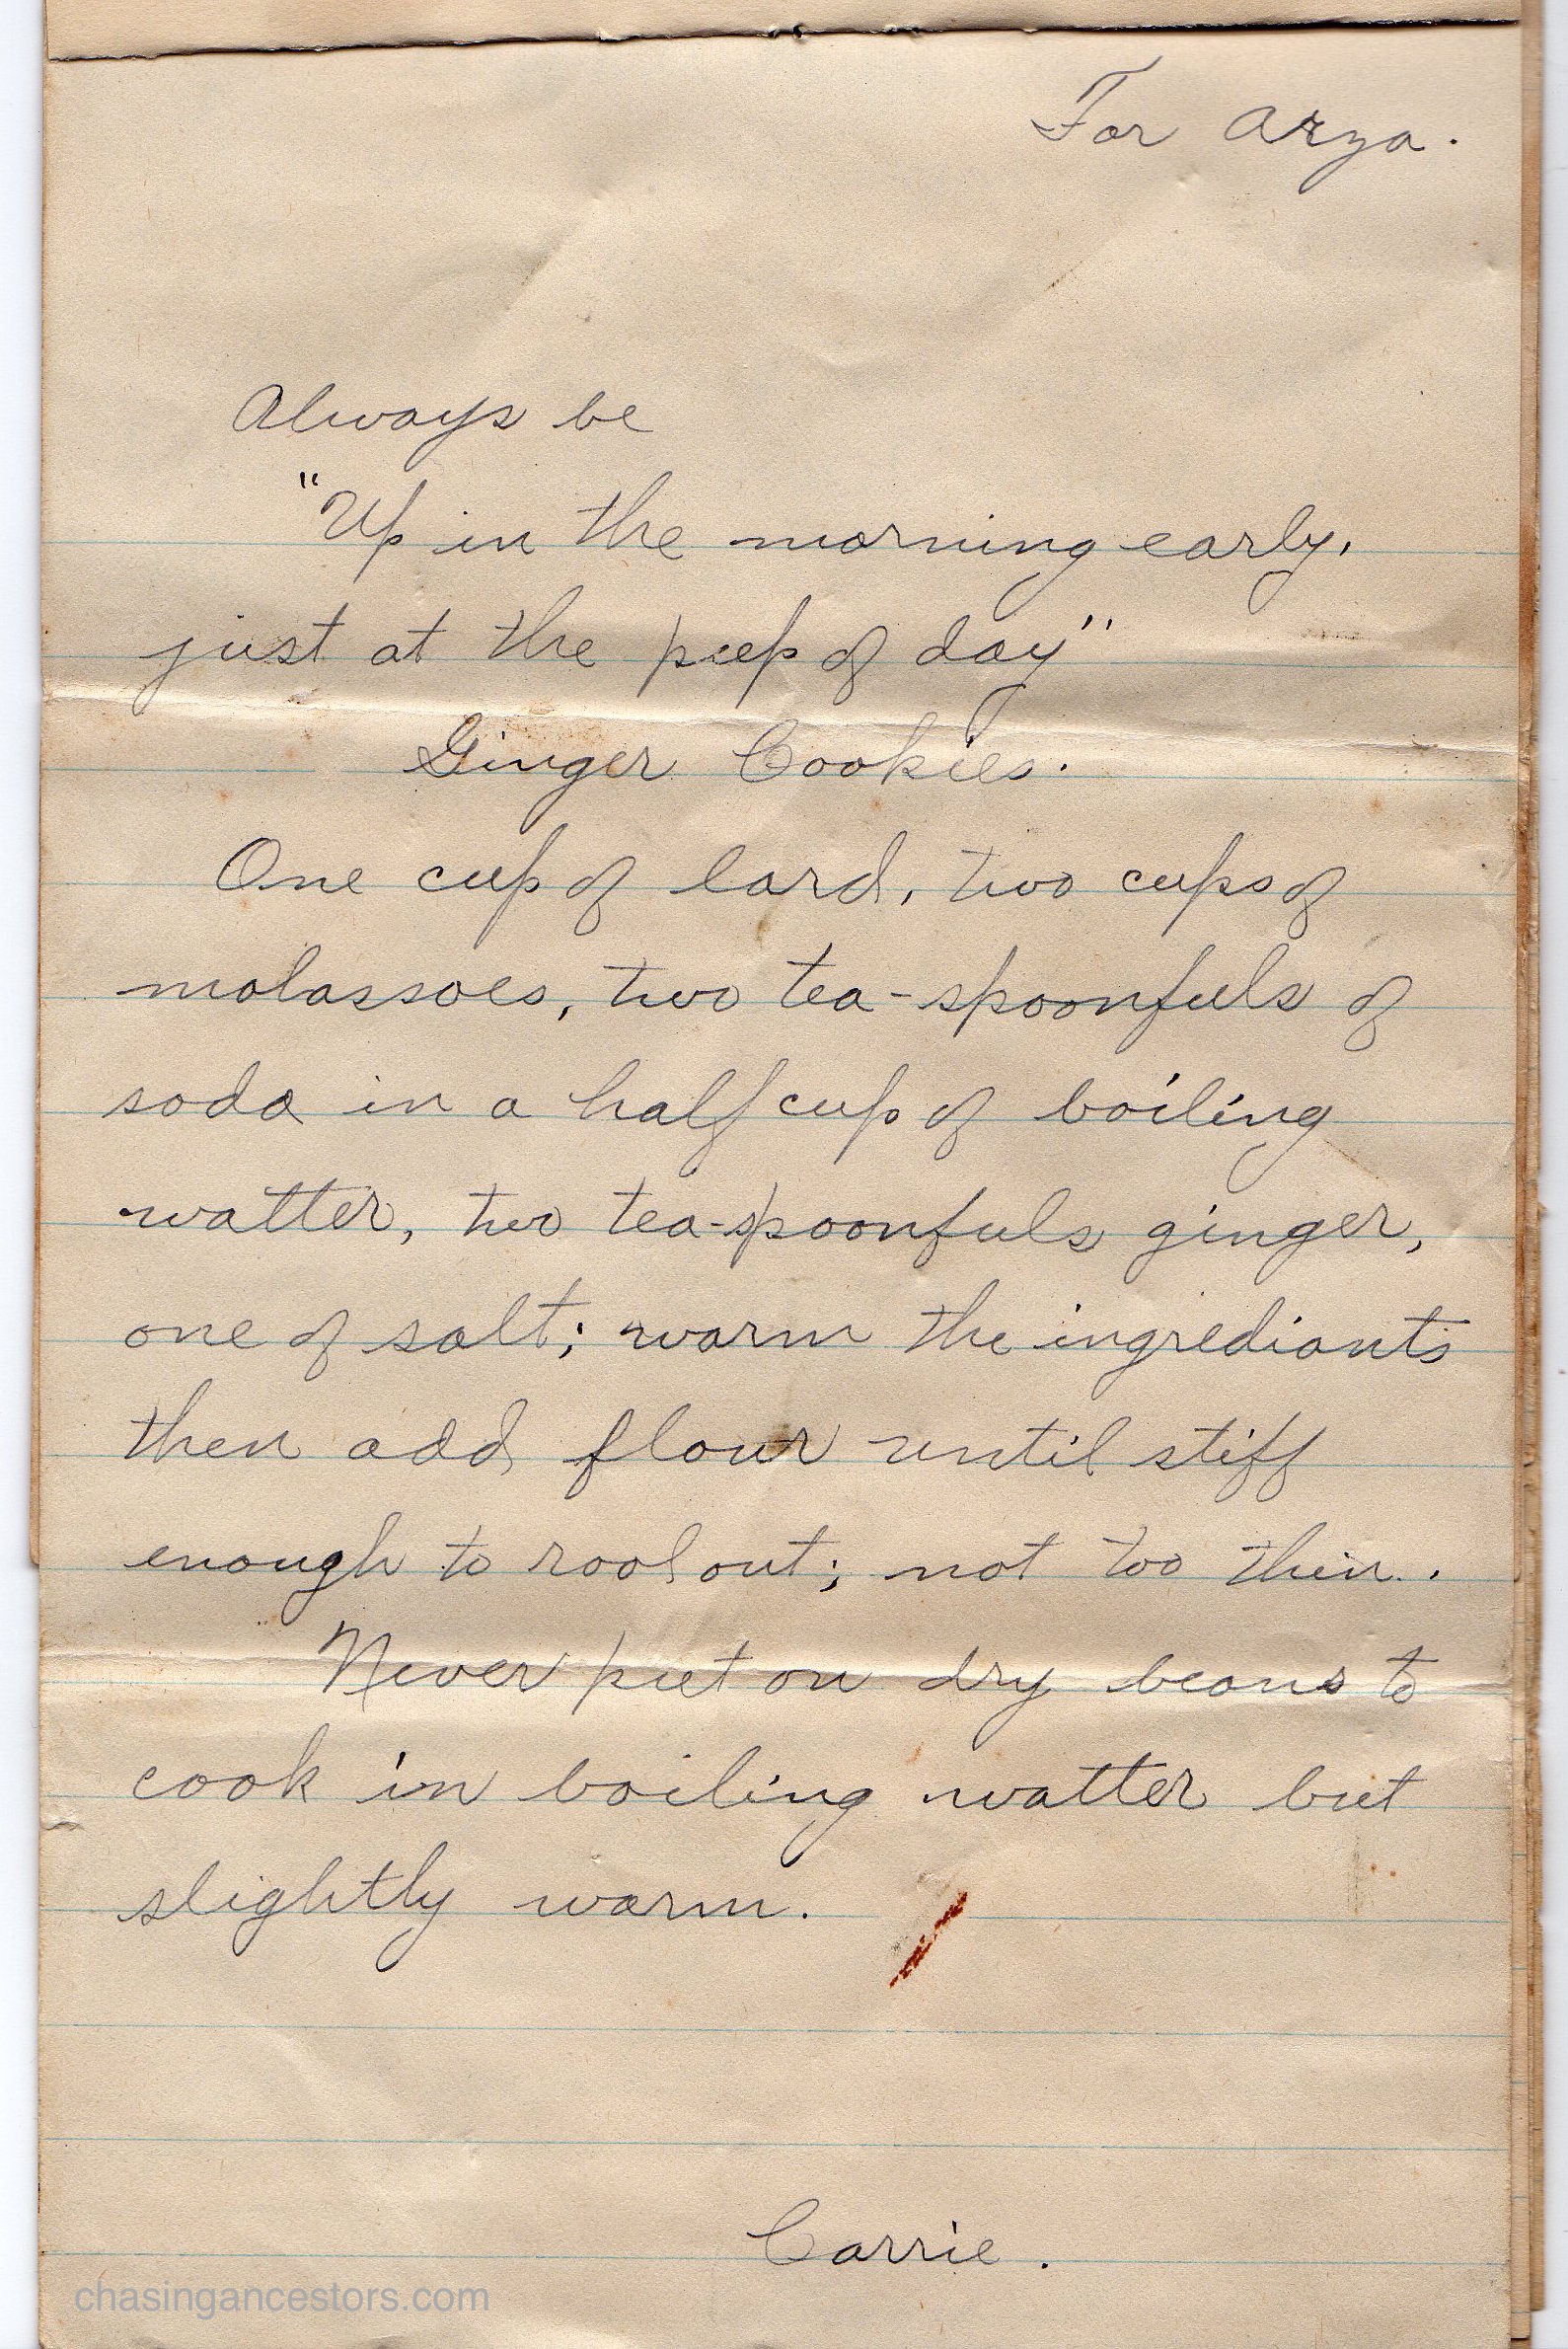 For Arza.
Always be
"Up in the morning early,
just at the peep of day"
Ginger Cookies.
One cup of lard, two cups of
molassoes, two tea-spoonfuls of
soda in a half cup of boiling
watter, two tea-spoonfuls ginger,
one of salt; warm the ingrediants
then add flour until stiff
enough to rool out; not too thin.
Never put on dry beans to
cook in boiling watter but
slightly warm.
Carrie.
chasingancestors.com